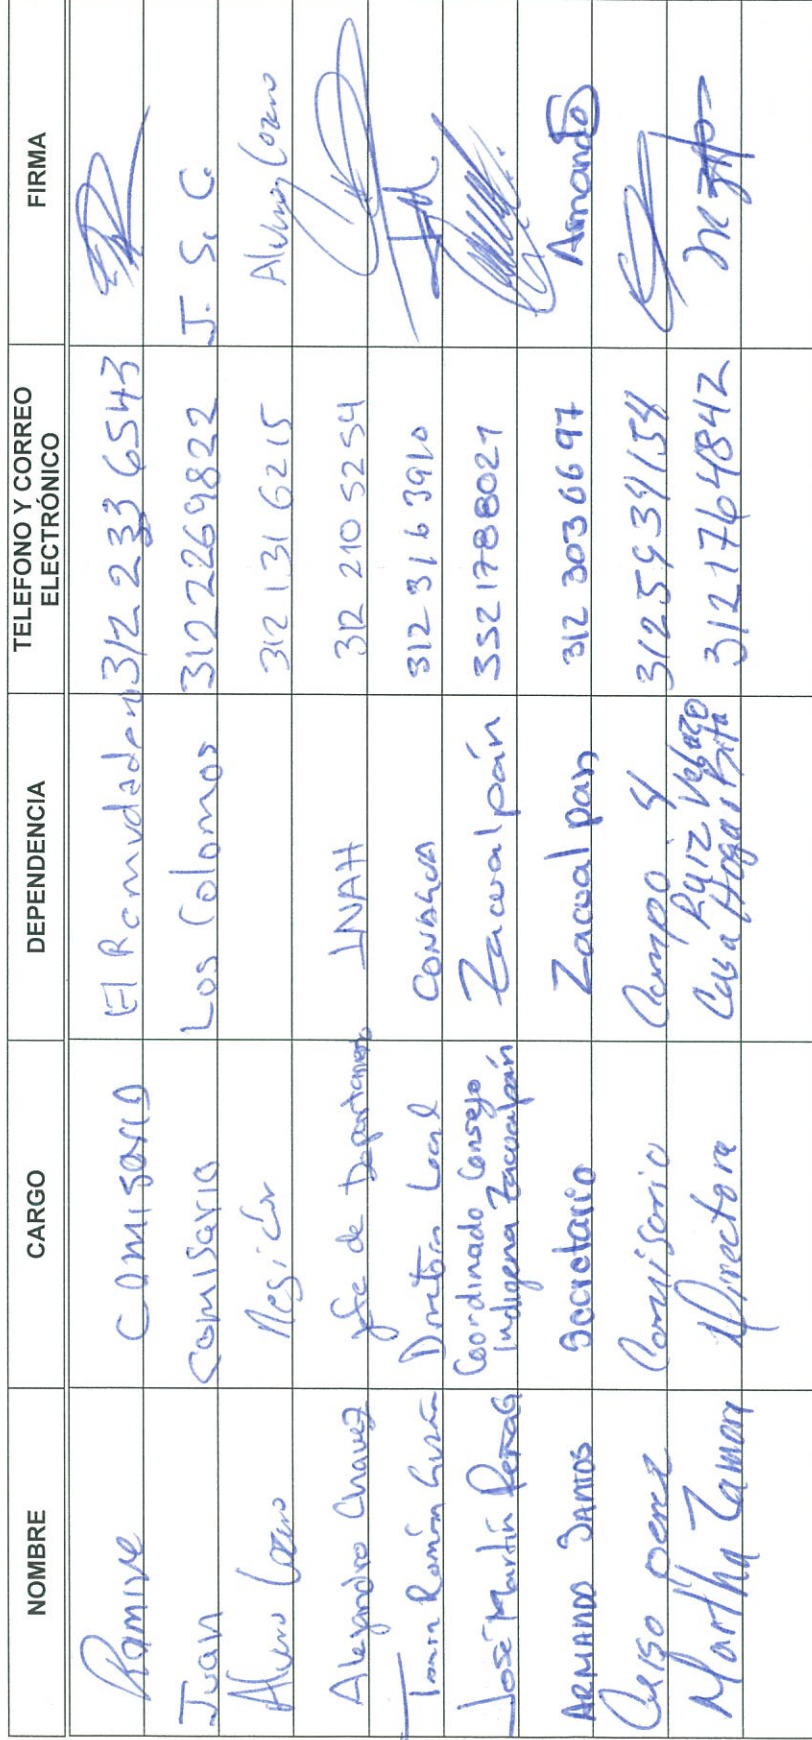 NOMBRE CARGO DEPENDENCIA TELEFONO Y CORREO ELECTRÓNICO FIRMA
Ramire Comisario El Remudadero 312 233 6543
Juan Comisario Los Colomos 312 2269822 J. S. C.
Alvaro Lozano Regidor 312 131 6215 Alvaro Lozano
Alejandro Chavez Jefe de Departamento INAH 312 210 5254
Ramón Director Local CONAGUA 312 316 3910
José Martín Coordinado Consejo Indígena Zacualpán Zacualpán 352 1788021
ARMANDO SANTOS Secretario Zacualpan 312 303 6697 Armando
Comisario Campo 4 312 5939154
Martha Directora Casa Hogar 312 1764842